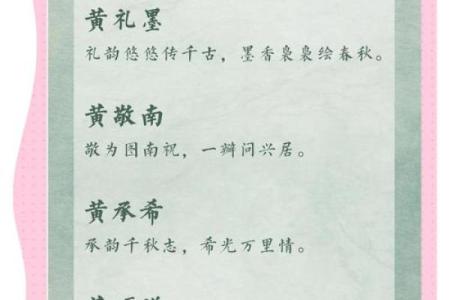 黄礼墨
礼韵悠悠传千古，墨香袅袅绘春秋。
黄敬南
敬为图南祝，一瓣问兴居。
黄承希
承韵千秋志，希光万里情。